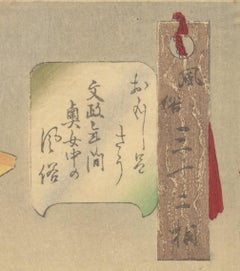 風俗三十二相
おもしろ
さう
文政年間
奥女中の
風俗